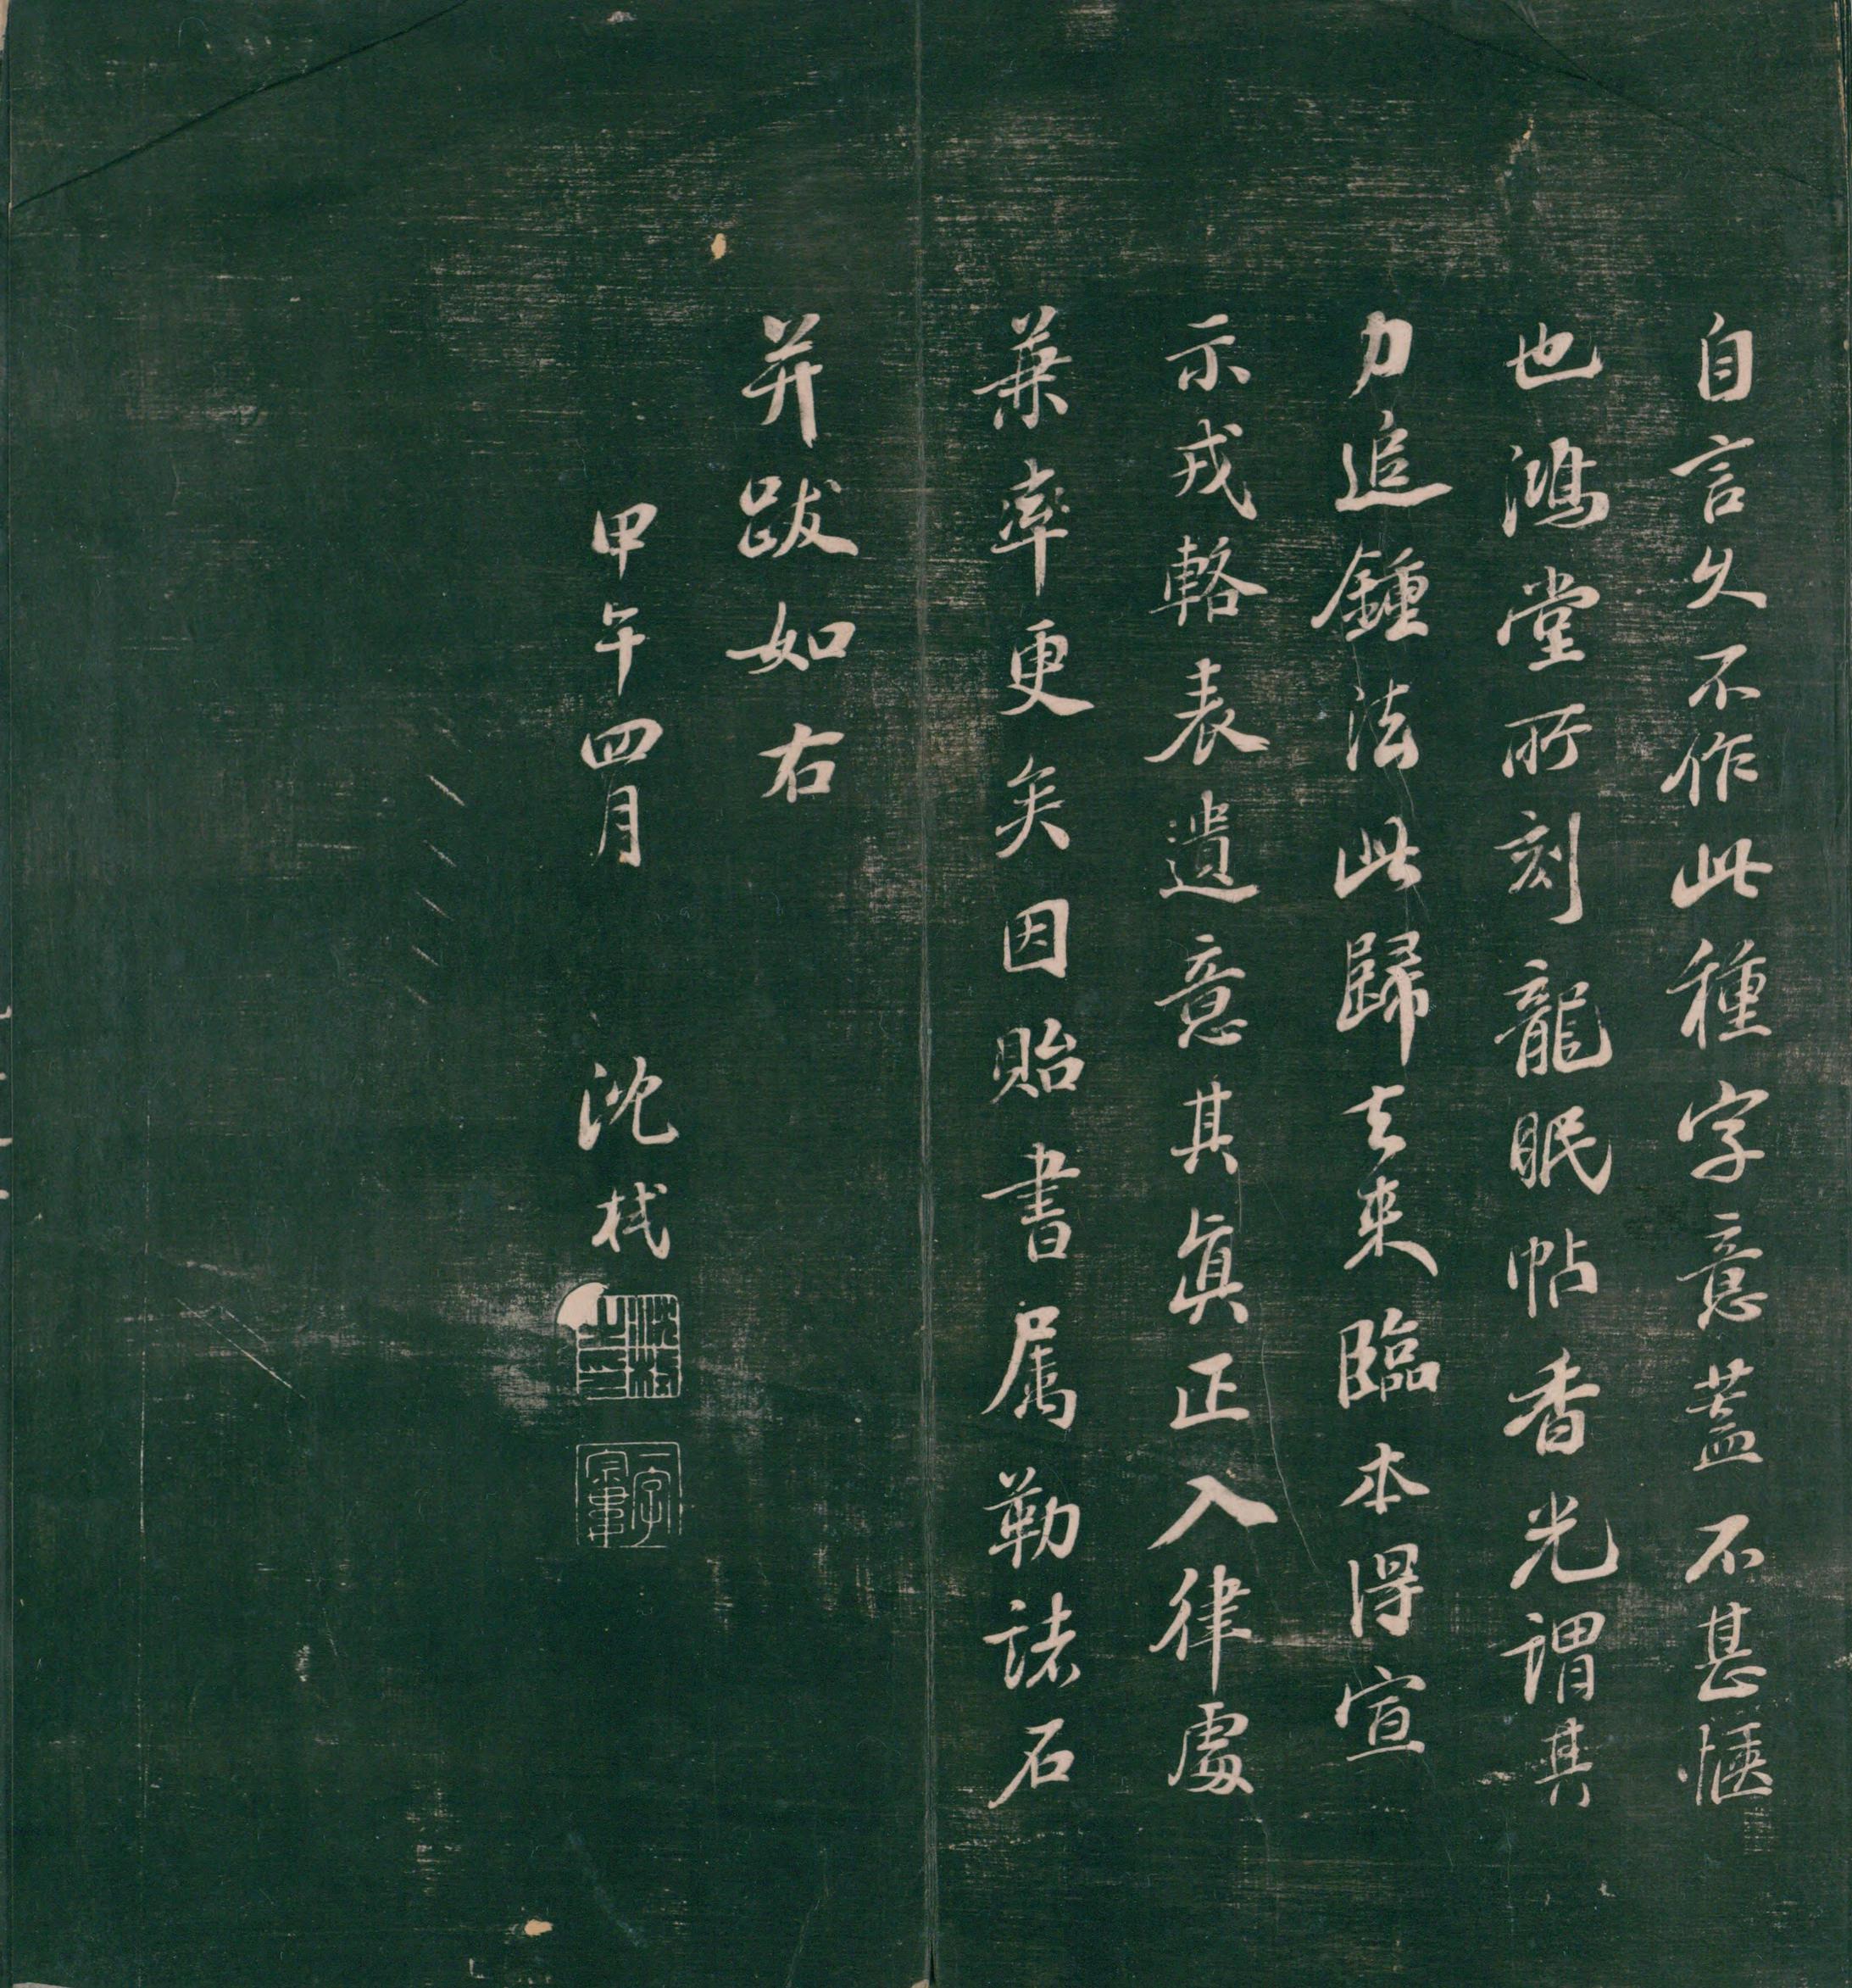 自言久不作此種字意蓋不甚愜
也鴻堂所刻龍眠帖香光謂其
力追鍾法此歸去來臨本得宣
示戎輅表遺意其眞正入律處
兼率更矣因貽書属勒諸石
并跋如右
甲午四月 沈栻
沈栻之印
一字